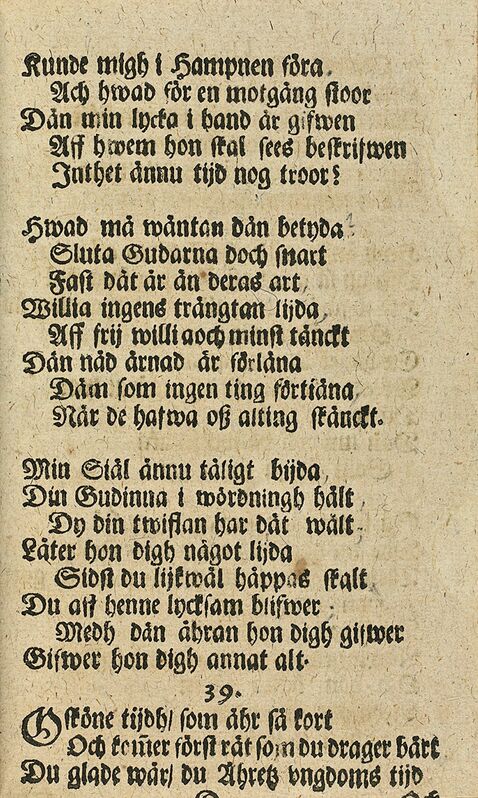 Kunde migh i Hampnen föra,
Ach hwad för en motgång stoor
Dän min lycka i hand är gifwen
Aff hwem hon skal sees beskrifwen
Inthet ännu tijd nog troor?
Hwad må wäntan dän betyda
Sluta Gudarna doch snart
Fast dät är än deras art,
Willia ingens trängtan lijda,
Aff frij willi aoch minst tänckt
Dän nåd ärnad är förläna
Däm som ingen ting förtiäna,
När de hafwa oß alting skänckt.
Min Siäl ännu tåligt bijda,
Din Gudinna i wördningh hält,
Dy din twiflan har dät wält,
Låter hon digh något lijda
Sidst du lijkwäl häppas skalt,
Du aff henne lycksam blifwer,
Medh dän ähran hon digh gifwer
Gifwer hon digh annat alt.
39.
O sköne tijdh/ som ähr så kort
Och kom̃er först rät som du drager bärt
Du glade wår/ du Ähretz vngdoms tijd